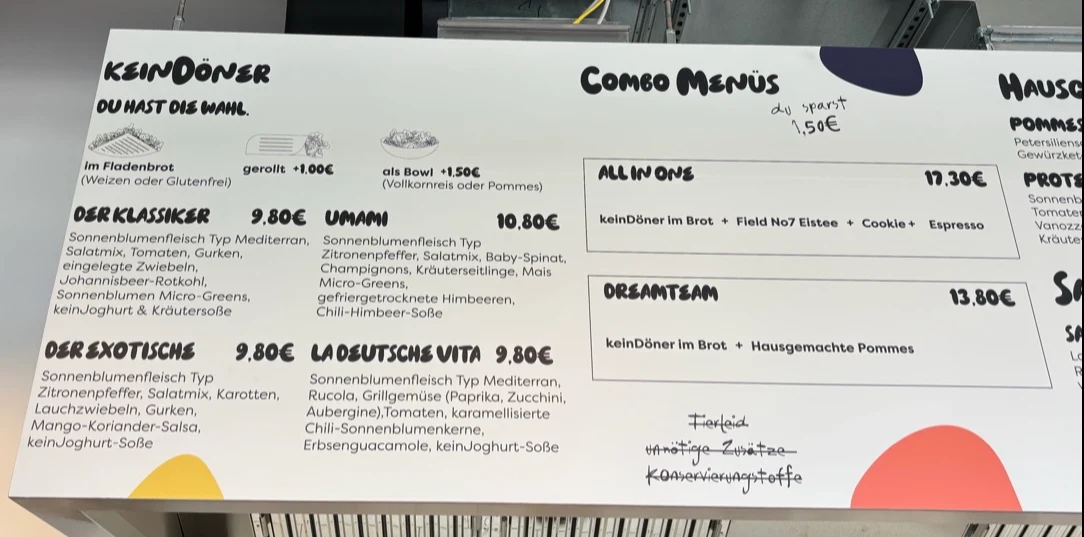 keinDöner
Du hast die Wahl.
im Fladenbrot
(Weizen oder Glutenfrei)
gerollt +1,00€
als Bowl +1,50€
(Vollkornreis oder Pommes)
Der Klassiker 9,80€
Sonnenblumenfleisch Typ Mediterran,
Salatmix, Tomaten, Gurken,
eingelegte Zwiebeln,
Johannisbeer-Rotkohl,
Sonnenblumen Micro-Greens,
keinJoghurt & Kräutersoße
Umami 10,80€
Sonnenblumenfleisch Typ
Zitronenpfeffer, Salatmix, Baby-Spinat,
Champignons, Kräuterseitlinge, Mais
Micro-Greens,
gefriergetrocknete Himbeeren,
Chili-Himbeer-Soße
Der Exotische 9,80€
Sonnenblumenfleisch Typ
Zitronenpfeffer, Salatmix, Karotten,
Lauchzwiebeln, Gurken,
Mango-Koriander-Salsa,
keinJoghurt-Soße
La Deutsche Vita 9,80€
Sonnenblumenfleisch Typ Mediterran,
Rucola, Grillgemüse (Paprika, Zucchini,
Aubergine),Tomaten, karamellisierte
Chili-Sonnenblumenkerne,
Erbsenguacamole, keinJoghurt-Soße
Combo Menüs
du sparst
1,50€
All in One 17,30€
keinDöner im Brot + Field No7 Eistee + Cookie + Espresso
Dreamteam 13,80€
keinDöner im Brot + Hausgemachte Pommes
Tierleid
unnötige Zusätze
Konservierungstoffe
Hausg
Pommes
Petersiliens
Gewürzket
Prote
Sonnenb
Tomate
Vanozz
Kräute
Sa
Sa